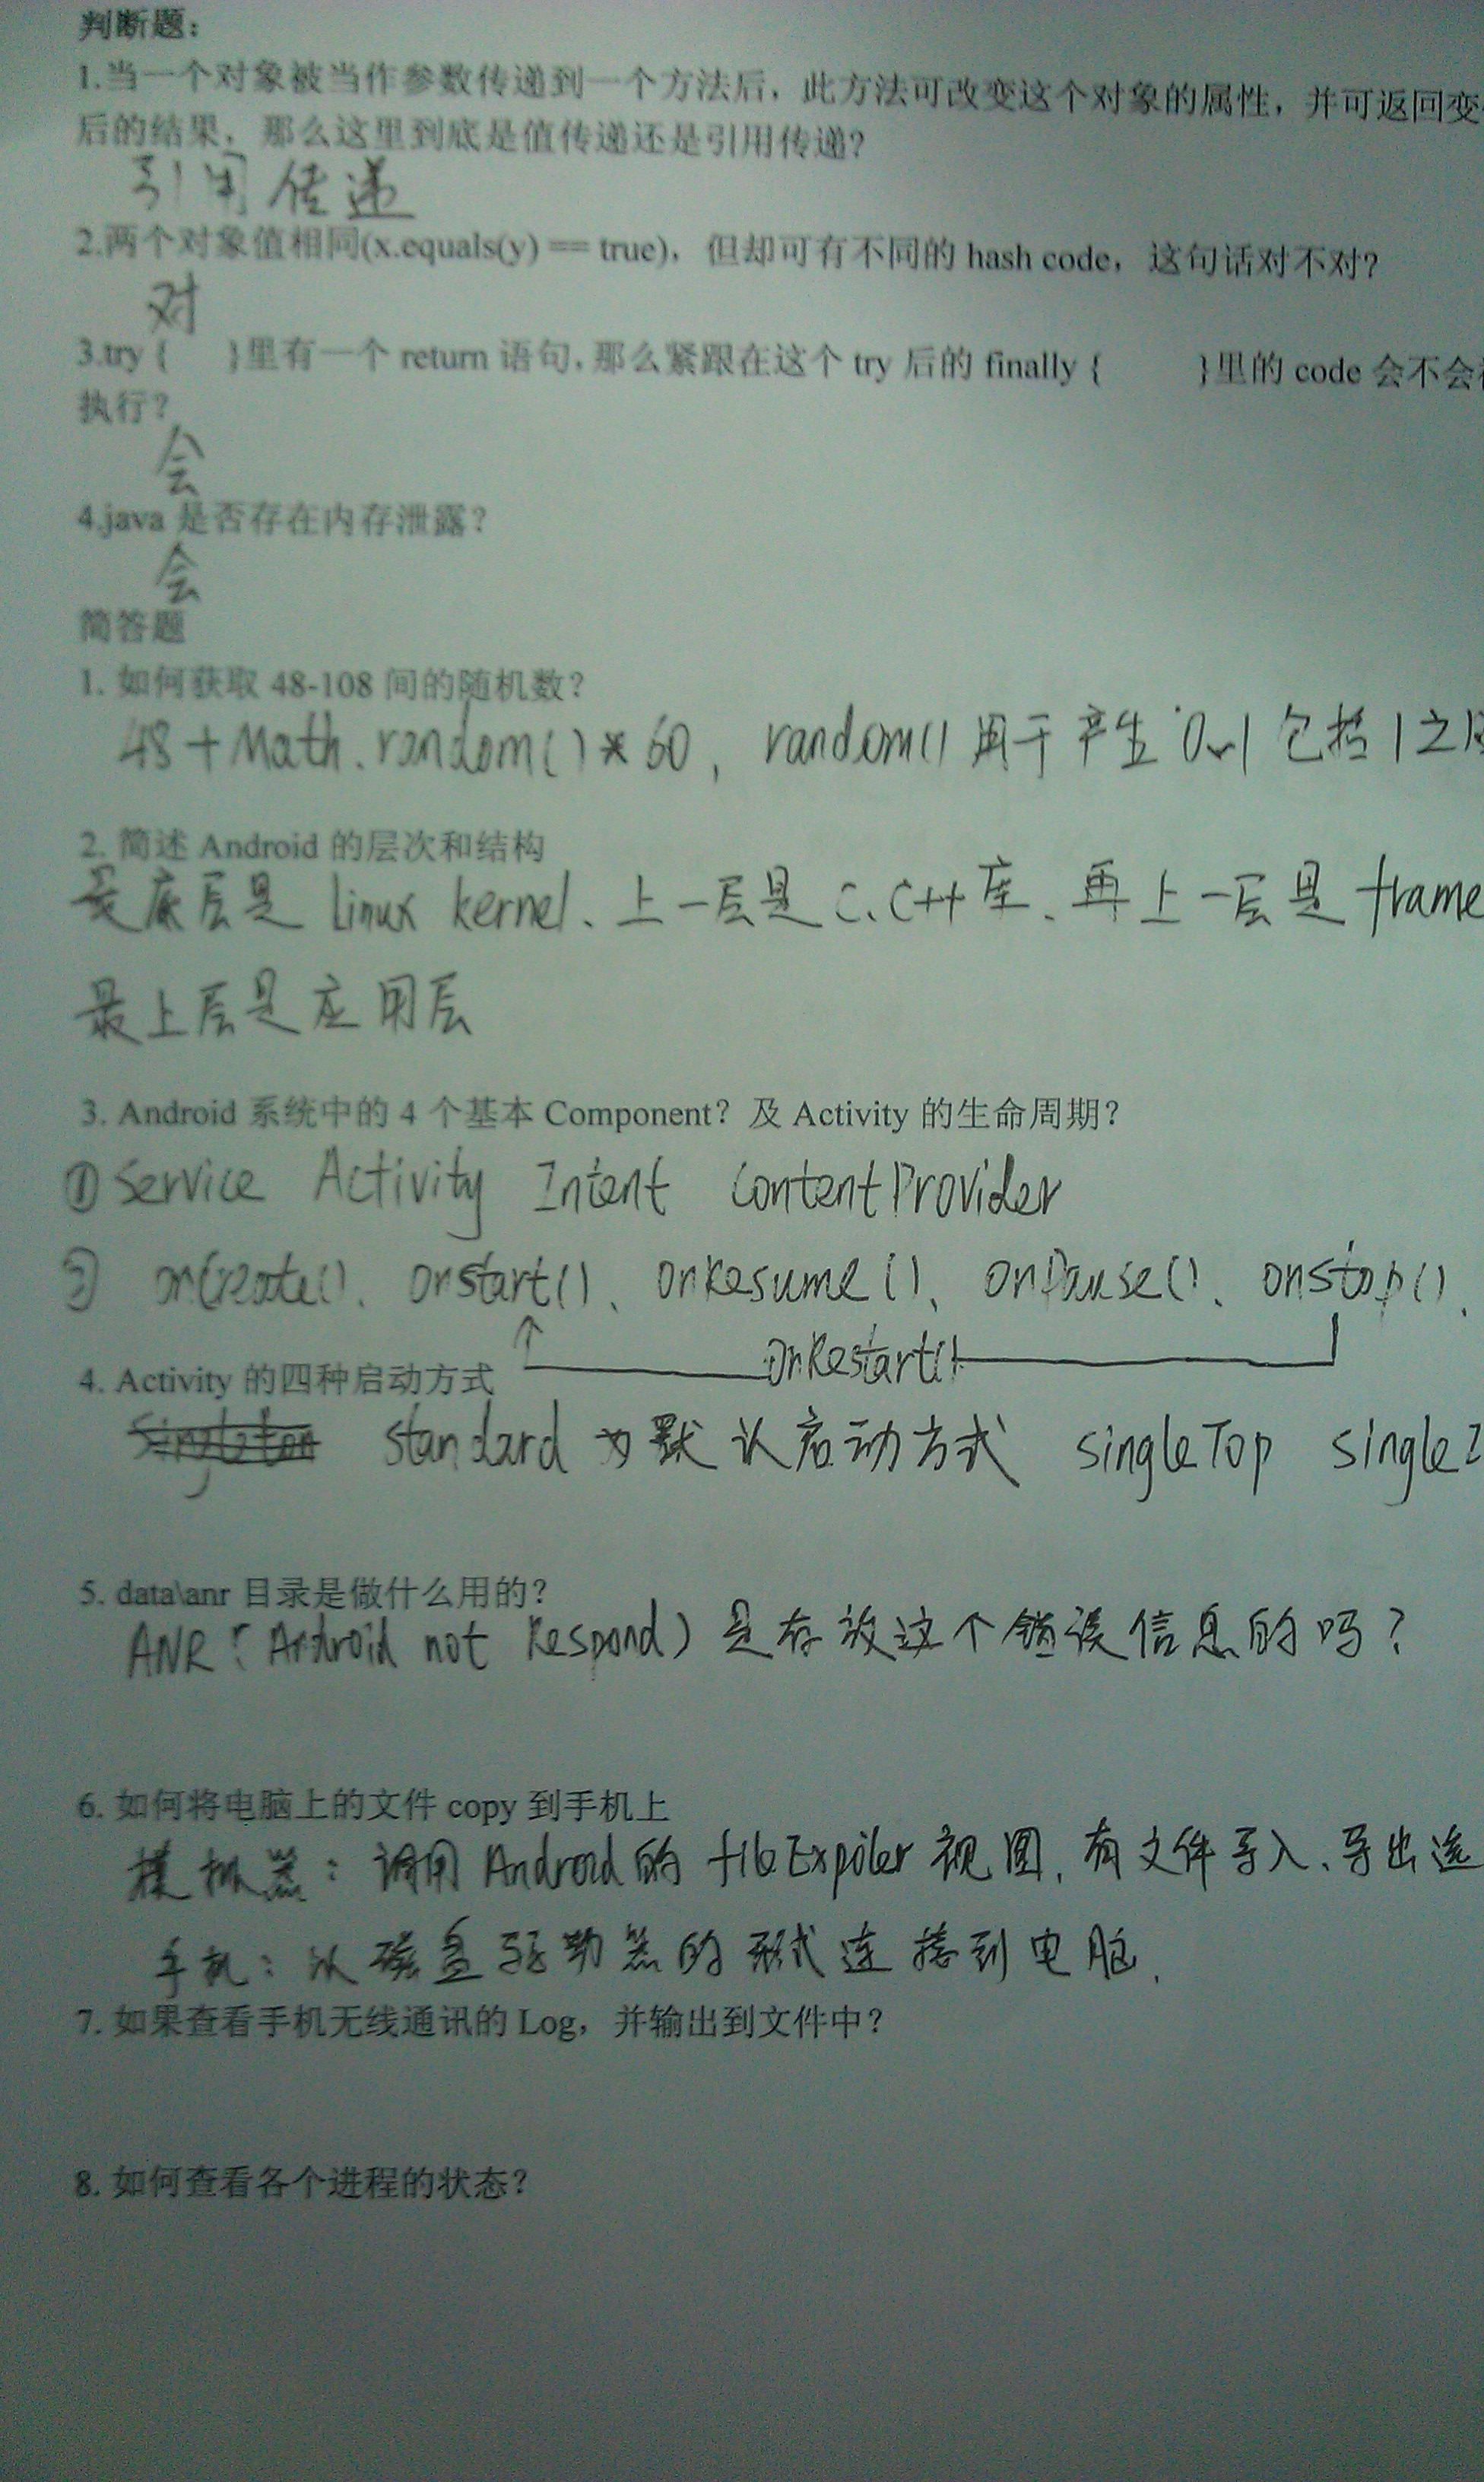 判断题:
1.当一个对象被当作参数传递到一个方法后，此方法可改变这个对象的属性，并可返回变
后的结果，那么这里到底是值传递还是引用传递?
引用传递
2.两个对象值相同(x.equals(y) == true)，但却可有不同的 hash code，这句话对不对?
对
3.try { }里有一个 return 语句，那么紧跟在这个 try 后的 finally { }里的 code 会不会
执行?
会
4.java 是否存在内存泄露?
会
简答题
1. 如何获取 48-108 间的随机数?
48+Math.random()*60，random()用于产生0~1包括1之
2. 简述 Android 的层次和结构
最底层是 linux kernel、上一层是 C、C++库、再上一层是 frame
最上层是应用层
3. Android 系统中的 4 个基本 Component? 及 Activity 的生命周期?
① Service Activity Intent ContentProvider
② onCreate()、onStart()、onResume()、onPause()、onStop()、
onRestart()
4. Activity 的四种启动方式
standard 为默认启动方式 singleTop single
5. data\anr 目录是做什么用的?
ANR(Android not Respond) 是存放这个错误信息的吗?
6. 如何将电脑上的文件 copy 到手机上
模拟器: 调用 Android 的 fileExpiler 视图，有文件导入、导出选
手机: 以磁盘驱动器的形式连接到电脑.
7. 如果查看手机无线通讯的 Log，并输出到文件中?
8. 如何查看各个进程的状态?